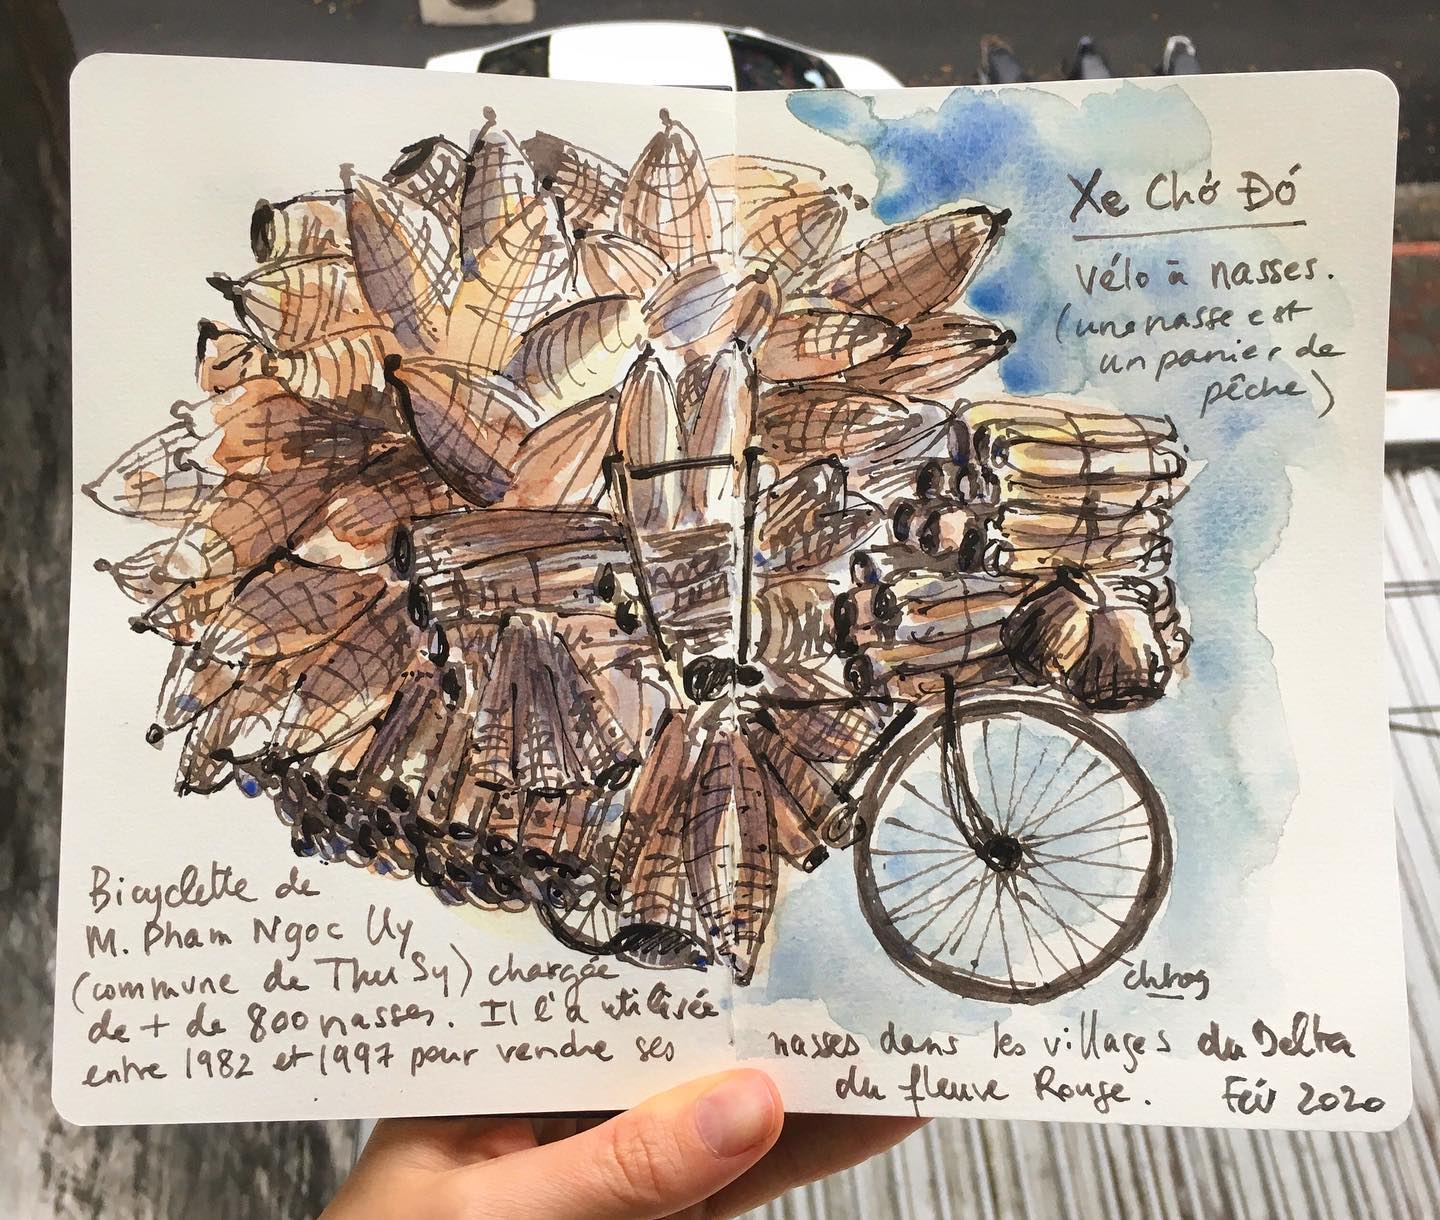 Xe Chở Đó
Vélo à nasses.
(une nasse est
un panier de
pêche)
Bicyclette de
M. Pham Ngoc Uy
(commune de Thu Sy) chargée
de + de 800 nasses. Il l'a utilisée
entre 1982 et 1997 pour vendre ses
nasses dans les villages du Delta
du fleuve Rouge.
Fév 2020